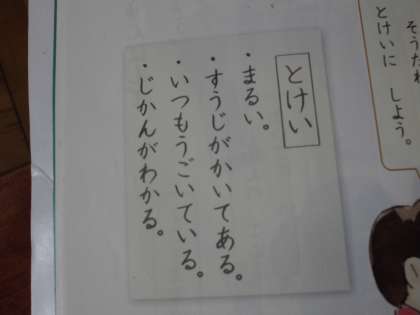 そうだね
とけいに しよう。
とけい
・まるい。
・すうじがかいてある。
・いつもうごいている。
・じかんがわかる。